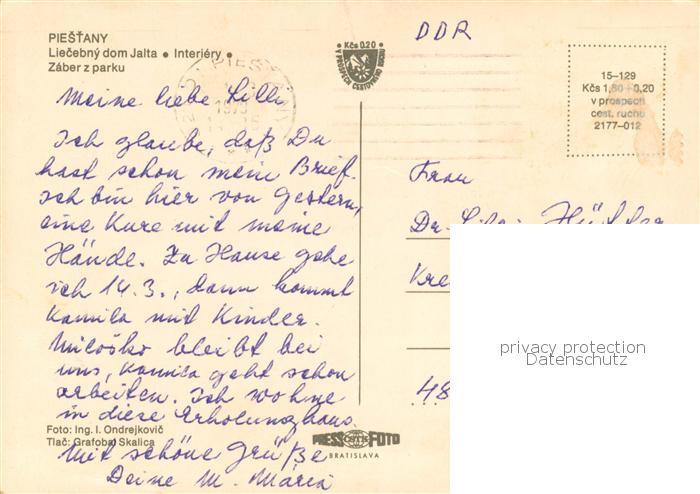 PIEŠŤANY
Liečebný dom Jalta • Interiéry •
Záber z parku
Meine liebe Lilli
Ich glaube, daß Du
hast schon mein Brief.
Ich bin hier von gestern,
eine Kure mit meine
Hände. Zu Hause gehe
ich 14.3., dann kommt
Kamila mit Kinder.
Miloško bleibt bei
uns, Kamila geht schon
arbeiten. Ich wohne
in diese Erholungshaus.
Mit schöne Grüße
Deine M. Mária
Foto: Ing. I. Ondrejkovič
Tlač: Grafobal Skalica
Kčs 0.20
V PROSPECH CESTOVNÉHO RUCHU
PIEŠŤANY
PRESS FOTO
BRATISLAVA
DDR
15-129
Kčs 1,60 + 0,20
v prospech
cest. ruchu
2177-012
Frau
Dr.
Kre
48
privacy protection
Datenschutz